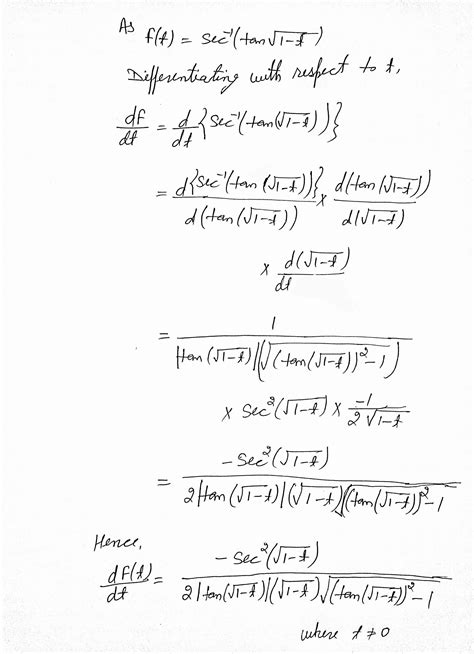 As f(t) = sec⁻¹(tan√1-t)
Differentiating with respect to t,
df/dt = d/dt {sec⁻¹(tan(√1-t))}
= d{sec⁻¹(tan(√1-t))}/d(tan(√1-t)) × d(tan(√1-t))/d(√1-t)
× d(√1-t)/dt
= 1/(|tan(√1-t)|(√(tan(√1-t))²-1))
× sec²(√1-t) × -1/(2√1-t)
= -sec²(√1-t)/(2|tan(√1-t)|(√1-t)√(tan(√1-t))²-1)
Hence,
df(t)/dt = -sec²(√1-t)/(2|tan(√1-t)|(√1-t)√(tan(√1-t))²-1)
where t≠0